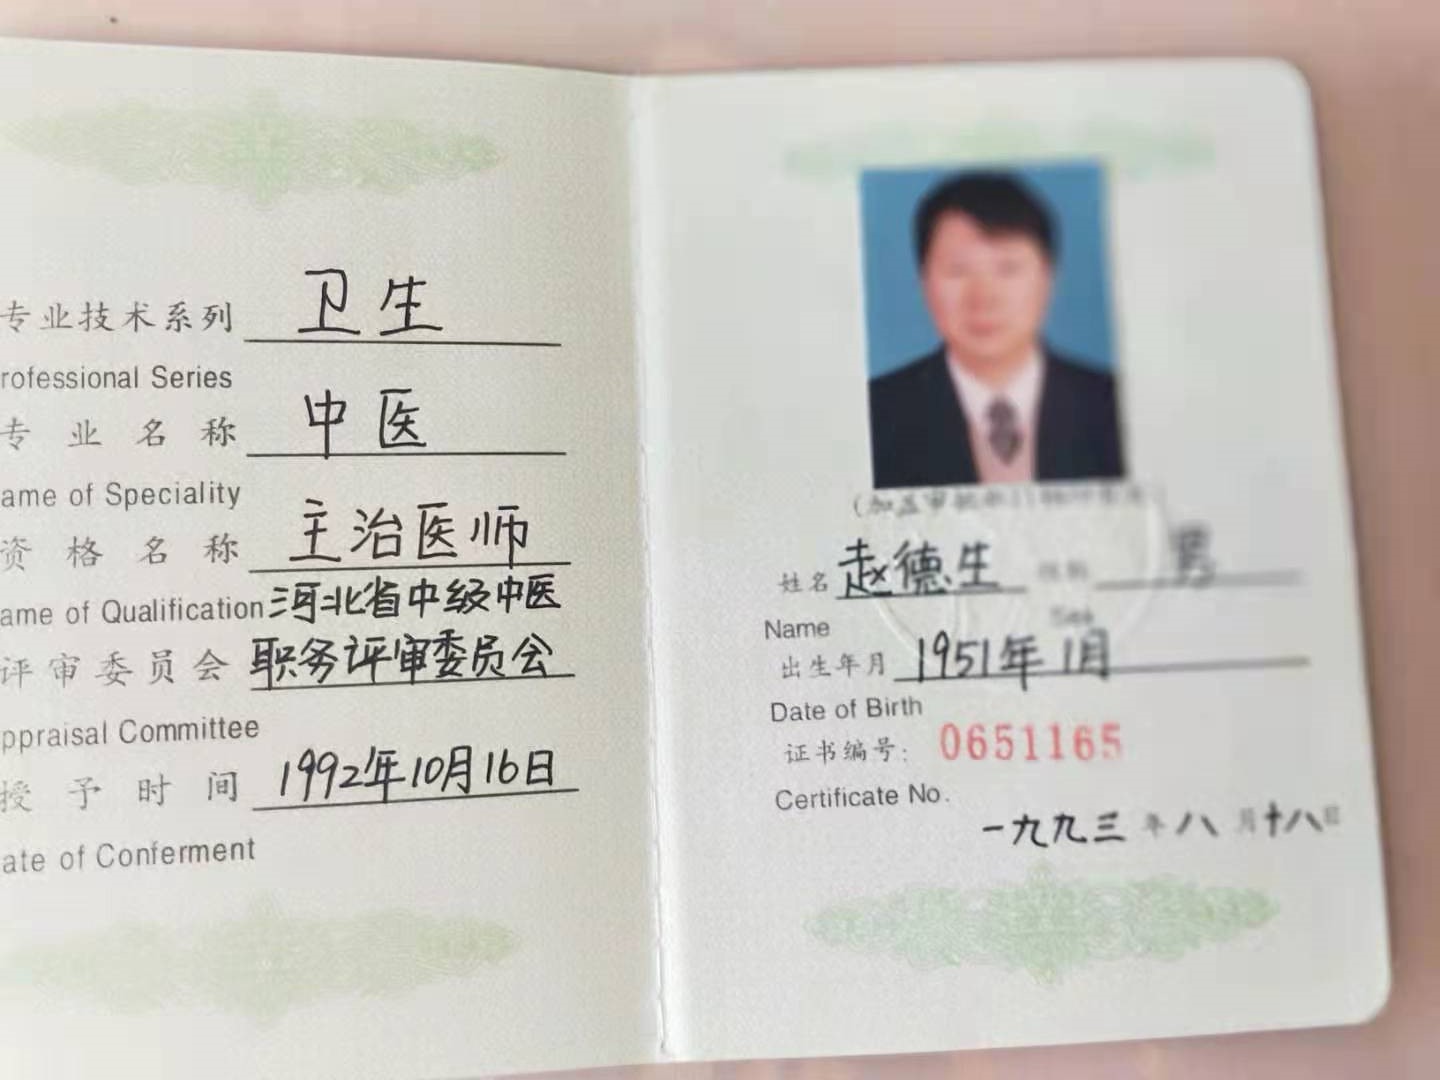 专业技术系列 卫生
rofessional Series
专业名称 中医
ame of Speciality
资格名称 主治医师
ame of Qualification 河北省中级中医
评审委员会 职务评审委员会
ppraisal Committee
授予时间 1992年10月16日
ate of Conferment
姓名 赵德生 男
Name Sex
出生年月 1951年1月
Date of Birth
证书编号: 0651165
Certificate No.
一九九三年八月十八日